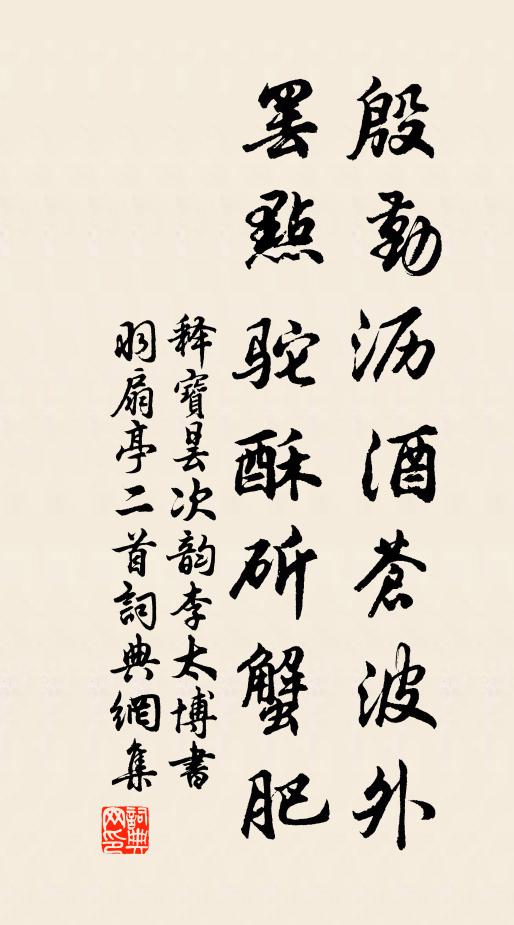 殷勤沥酒苍波外
罢點驼酥斫蟹肥
释寶昙次韵李太博書
羽扇亭二首詞典網集
詞典
网印